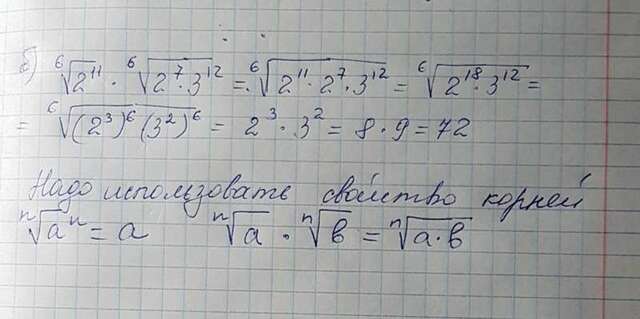 б) ⁶√2¹¹ · ⁶√2⁷ · 3¹² = ⁶√2¹¹ · 2⁷ · 3¹² = ⁶√2¹⁸ · 3¹² =
= ⁶√(2³)⁶ (3²)⁶ = 2³ · 3² = 8 · 9 = 72
Надо использовать свойство корней
ⁿ√aⁿ = a ⁿ√a · ⁿ√b = ⁿ√a · b